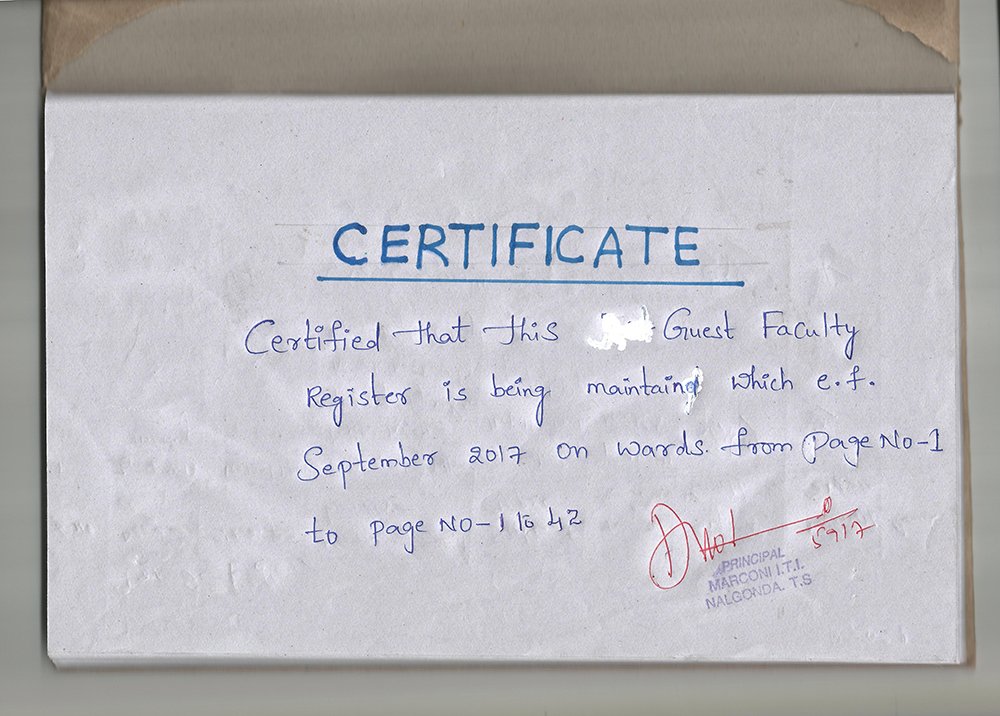 CERTIFICATE
Certified that this Guest Faculty
Register is being maintaing which e.f.
September 2017 on wards. from page No-1
to page NO-1 to 42
5917
PRINCIPAL
MARCONI I.T.I.
NALGONDA. T.S